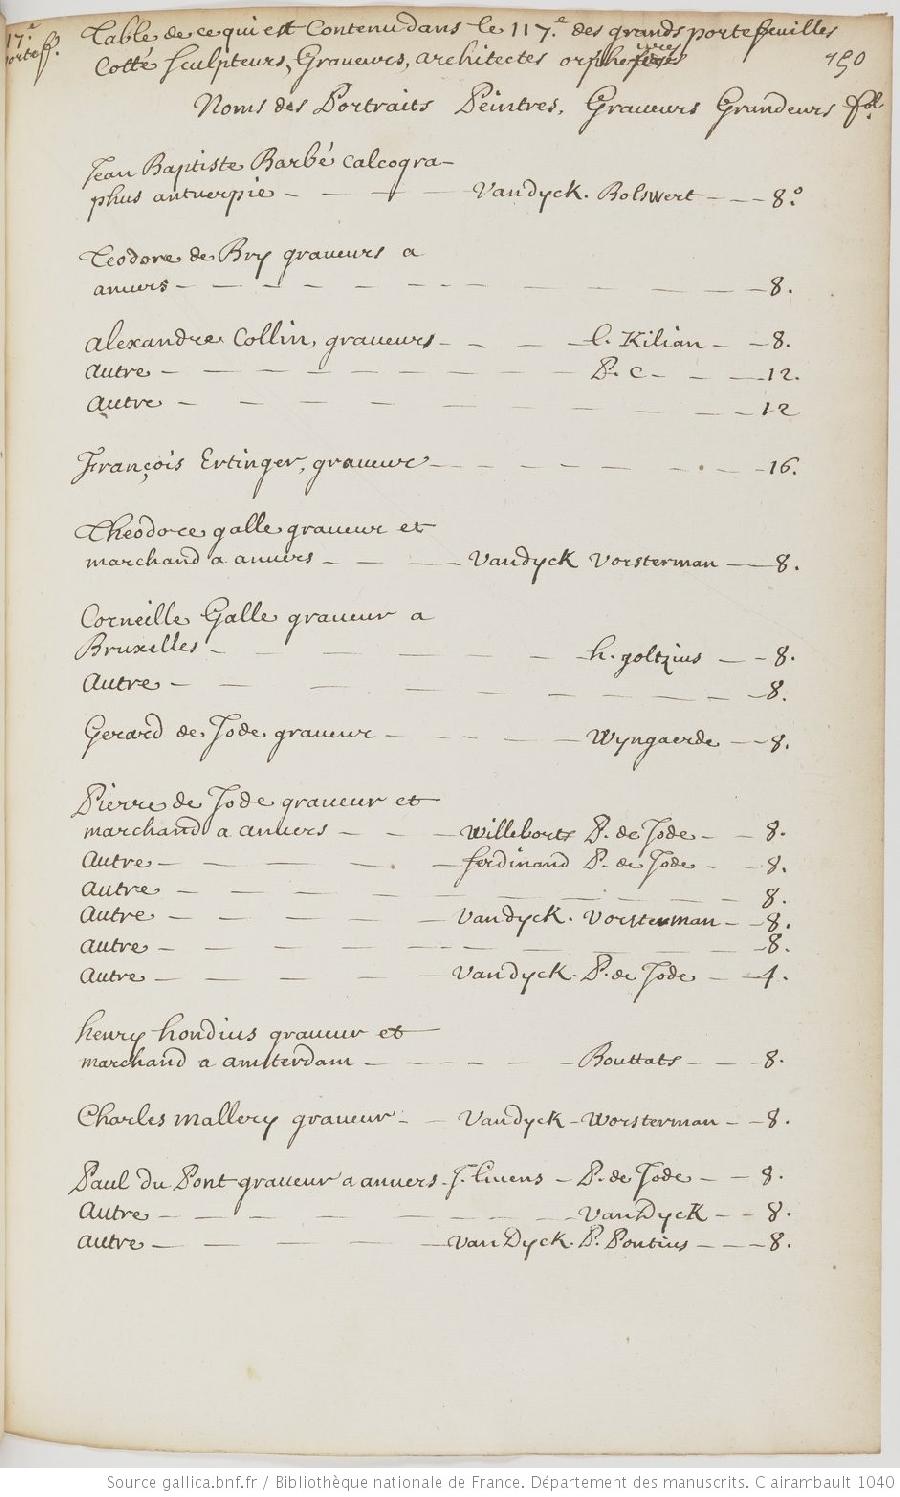 17.e
portef.
Table de ce qui est Contenu dans le 117.e des grands portefeuilles
Cotté Sculpteurs, Graveurs, architectes orphevres
150
Noms des Portraits Peintres, Graveurs Grandeurs fol.
Jean Baptiste Barbé calcogra-
phus antuerpie - - - - Vandyck. Bolswert - - - 8.o
Teodore de Bry graveurs a
anvers - - - - - - - - - - - 8.
alexandre Collin, graveurs - - - l. Kilian - - 8.
Autre - - - - - - - - P. c - - - 12.
Autre - - - - - - - - - - - 12
François Ertinger, graveure - - - - - - - 16.
Theodore galle graveur et
marchand a anvers - - - Vandyck Vorsterman - - 8.
Corneille Galle graveur a
Bruxelles - - - - - - h. goltzius - - 8.
Autre - - - - - - - - - - 8.
Gerard de Jode. graveur - - - - - Wyngaerde - - 8.
Pierre de Jode graveur et
marchand a anvers - - - Willeborts P. de Jode - - 8.
Autre - - - - - - ferdinand P. de Jode - - 8.
Autre - - - - - - - - - - 8.
Autre - - - - - Vandyck. Vorsterman - - 8.
Autre - - - - - - - - - - 8.
Autre - - - - - Vandyck. P. de Jode - - 4.
henry hondius graveur et
marchand a amsterdam - - - - - Bouttats - - - 8.
Charles mallery graveur - - Vandyck - Worsterman - - 8.
Paul du Pont graveur a anvers - J. livens - P. de Jode - - 8.
Autre - - - - - - - - VanDyck - - 8.
autre - - - - - VanDyck. P. Pontius - - - 8.
Source gallica.bnf.fr / Bibliothèque nationale de France. Département des manuscrits. Clairambault 1040